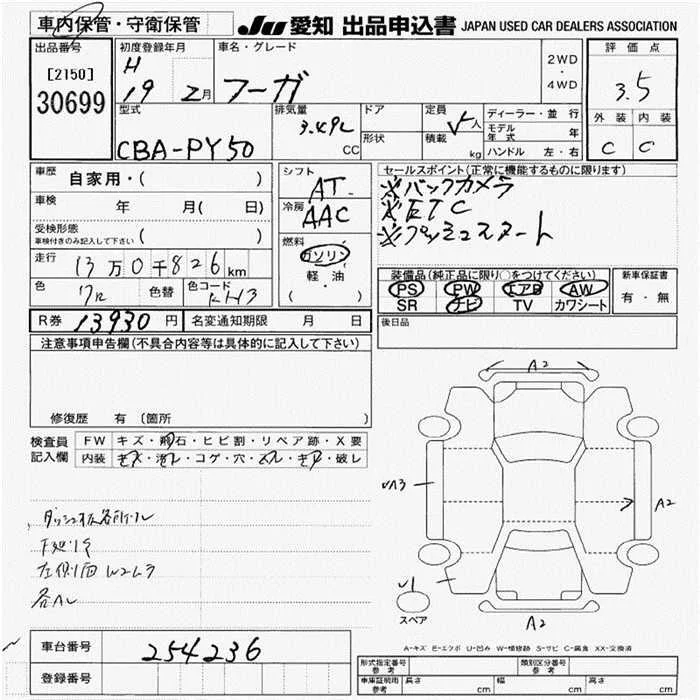 車内保管・守衛保管
JU 愛知 出品申込書 JAPAN USED CAR DEALERS ASSOCIATION
出品番号
[2150]
30699
初度登録年月
H
19 2月
車名・グレード
フーガ
2WD
・
4WD
評価点
3.5
外装 内装
C C
型式
CBA-PY50
排気量
3.49L
CC
ドア
形状
定員
5人
積載
kg
ディーラー・並行
モデル年式 年
ハンドル 左・右
車歴 自家用・( )
車検 年 月( 日)
受検形態
車検付きのみ記入して下さい ( )
走行 13万0千826km
色 色替 色コード KH3
シフト
AT
冷房
AAC
燃料
ガソリン
軽・油
( ・ )
セールスポイント(正常に機能するものに限ります)
※バックカメラ
※ETC
※プッシュスタート
装備品(純正品に限り○をつけてください)
PS PW エアB AW
SR ナビ TV カワシート
新車保証書
有・無
R券 13930円 名変通知期限 月 日
後日品
注意事項申告欄(不具合内容等は具体的に記入して下さい)
修復歴 有 (箇所 )
検査員
記入欄
FW キズ・飛石・ヒビ割・リペア跡・X要
内装 キズ・汚レ・コゲ・穴・スレ・キレ・破レ
各AL
A2
A3
A2
1
スペア
A2
A-キズ E-エクボ U-凹み W-補修跡 S-サビ C-腐食 XX-交換済
車台番号 254236
登録番号
形式指定番号
参考
類別区分番号
参考
車庫証明用
参考
長さ cm 幅 cm 高さ cm